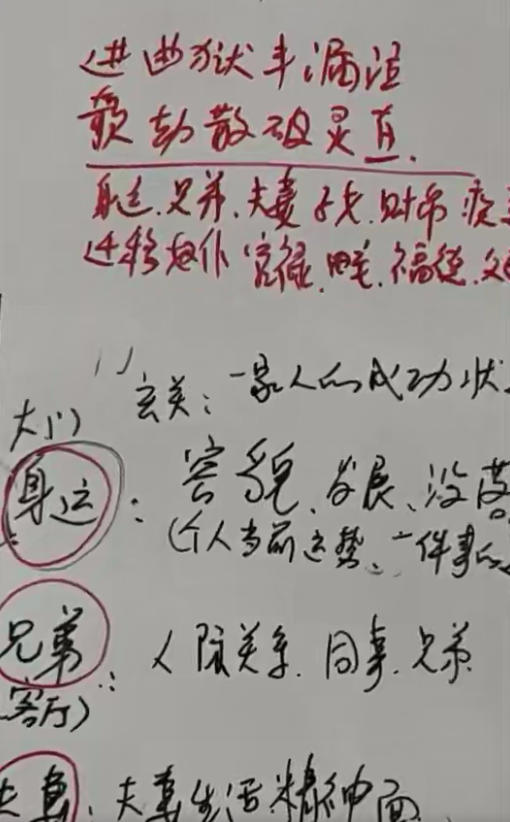 进曲狱丰漏泣
颜劫散破灵直.
身运.兄弟.夫妻子女.财帛疾
迁移奴仆官禄.田宅.福德.父
玄关：一家人的成功状
大门）
身运：容貌、发展、没落
（个人当前运势、一件事的
兄弟：人际关系.同事.兄弟
客厅）
夫妻、夫妻生活精神面